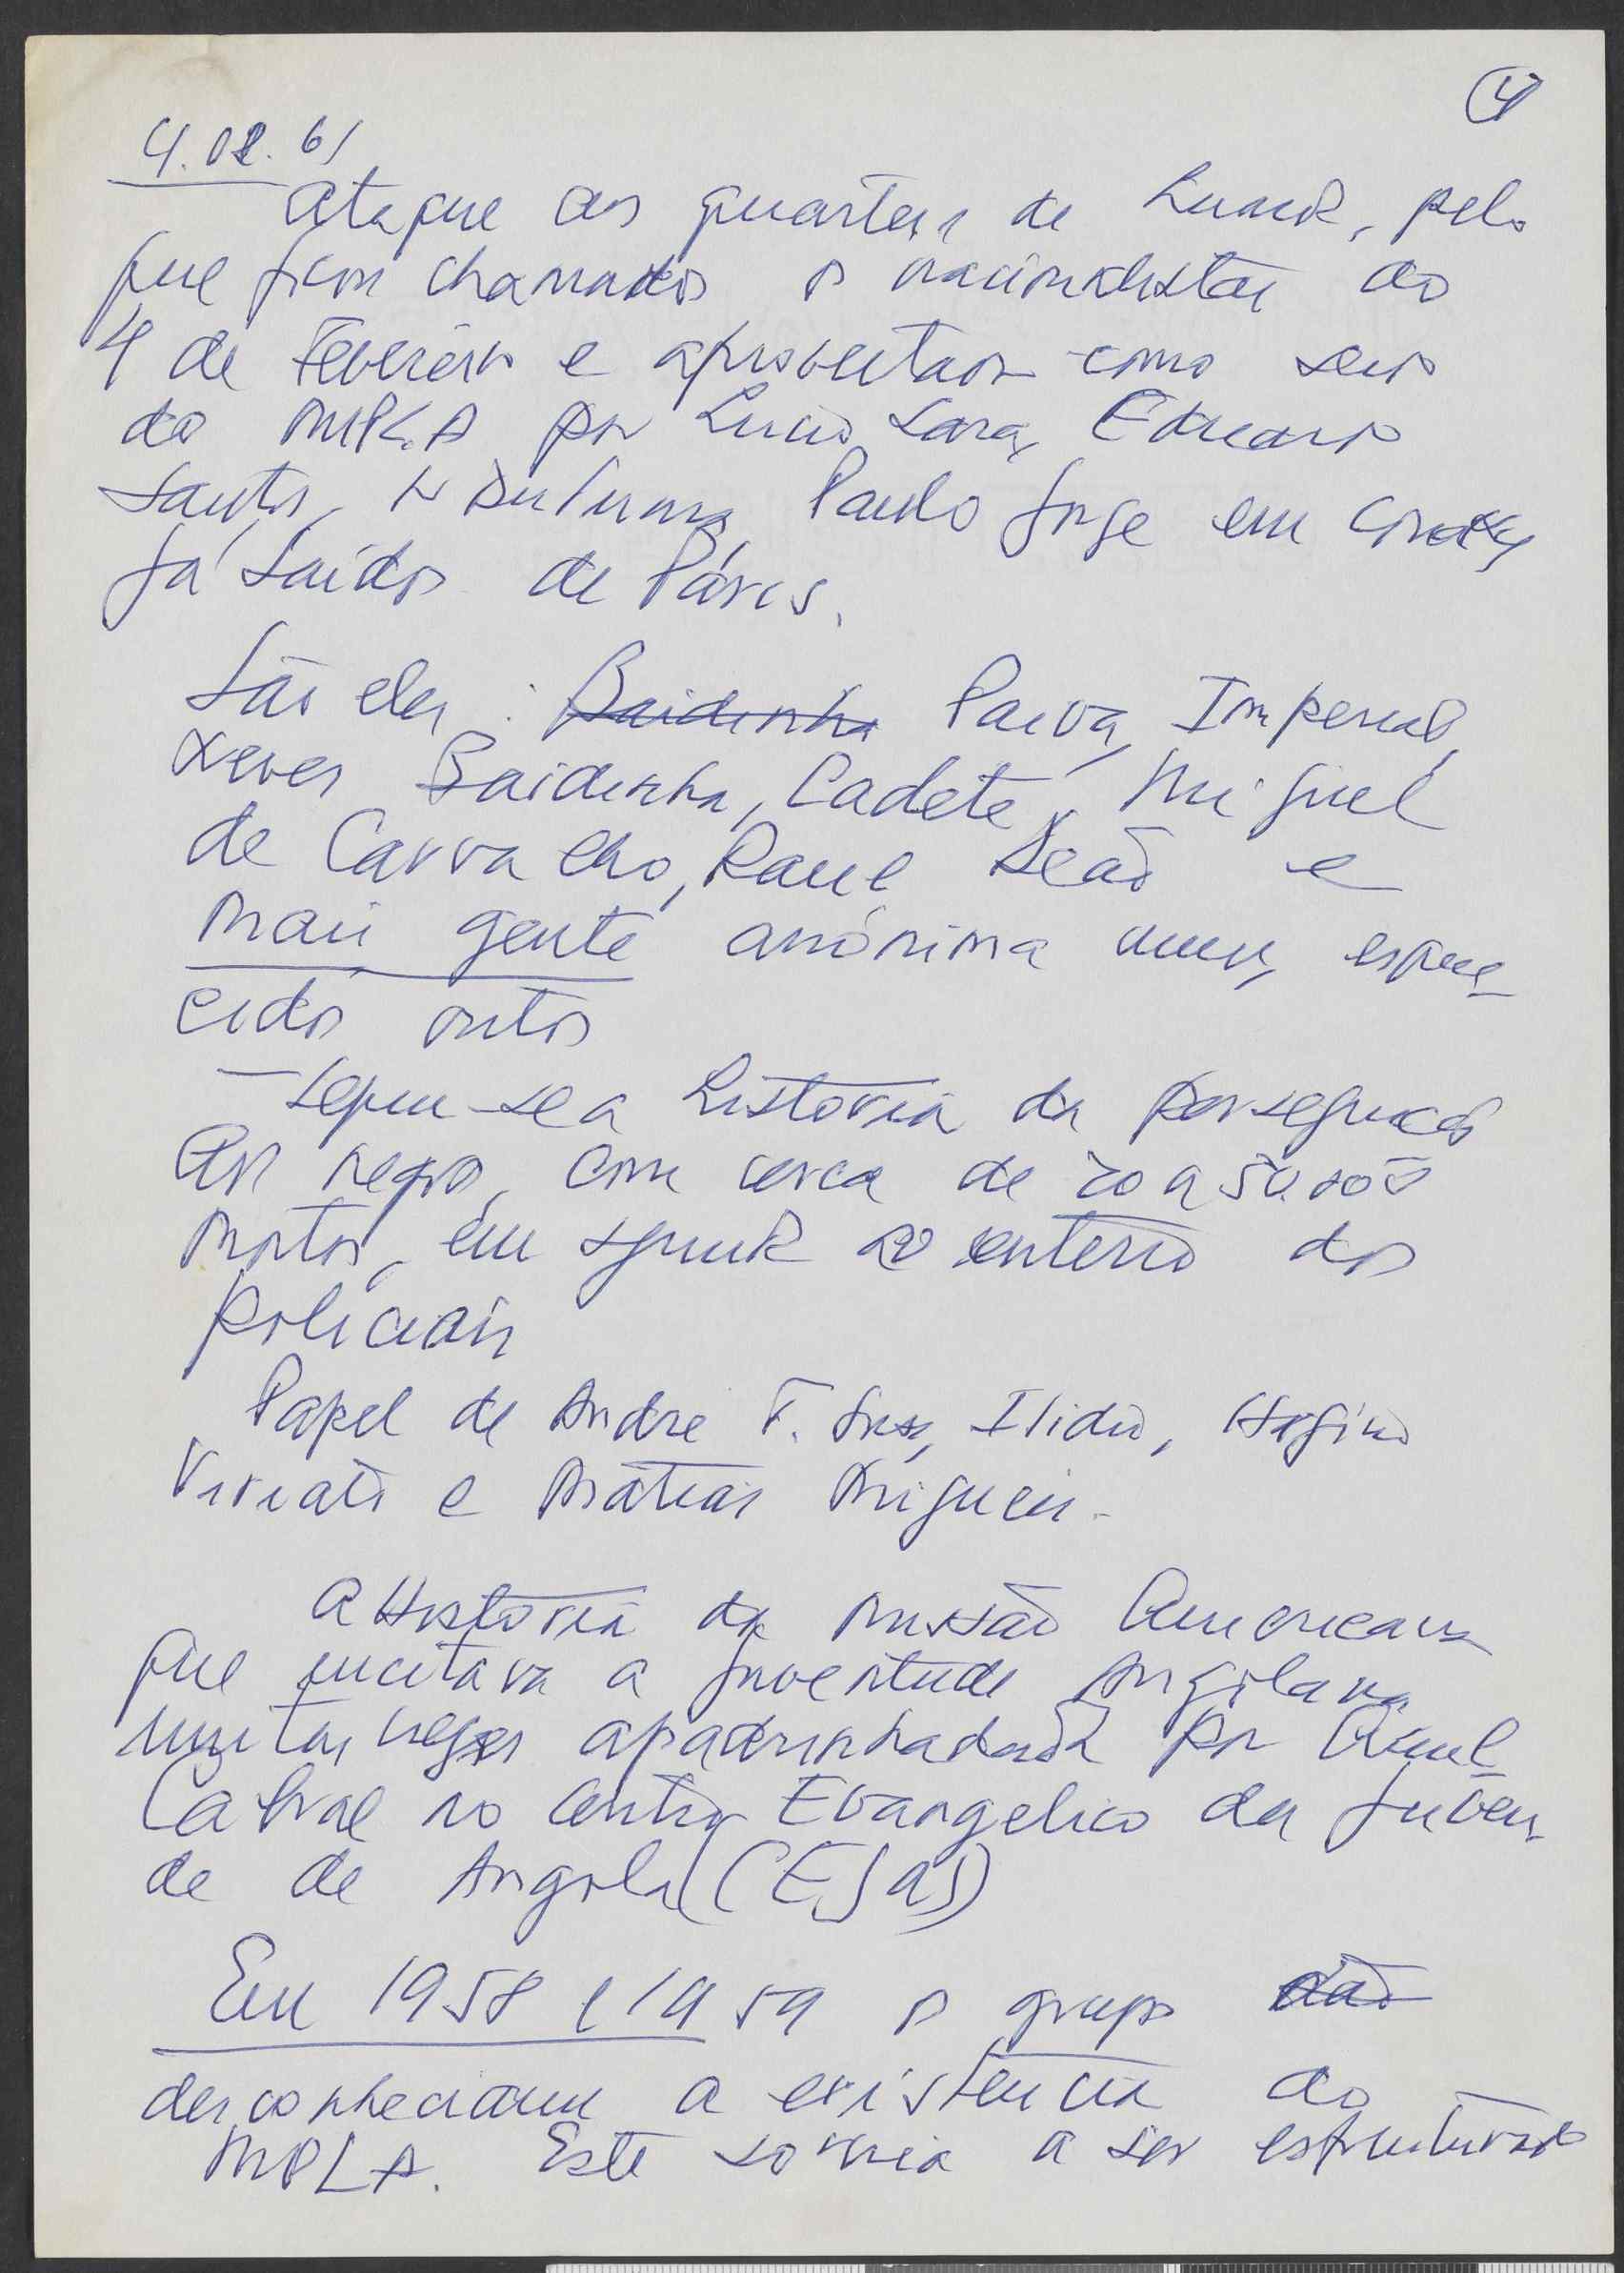 4
4.02.61
Ataque aos quarteis de Luanda, pelo
que ficou chamados os nacionalistas do
4 de Fevereiro e aproveitados como seus
do MPLA por Lucio Lara, Eduardo
Santos, Paulo Jorge em
Já saídos de Páris.
São eles: Baidinha Paiva, Imperial,
Neves Baidinha, Cadete, Miguel
de Carvalho, Raul Deão e
mais gente anónima uns, esque-
cidos outos
— Seguiu-se a historia da perseguição
aos negros, com cerca de 20 a 50.000
mortos, em seguida ao enterro dos
policiais
Papel de Andre F. Ilidio, Higino
Viriato e Matias Migueis.
A Historia da missão Americana
que incitava a juventude Angolana
muitas vezes apadrinhada por Amil
Cabral no Centro Evangelico da Juven
de de Angola (CEJA)
Em 1958 e 1959 o grupo não
desconheciam a existencia do
MPLA. Este so viria a ser estruturado